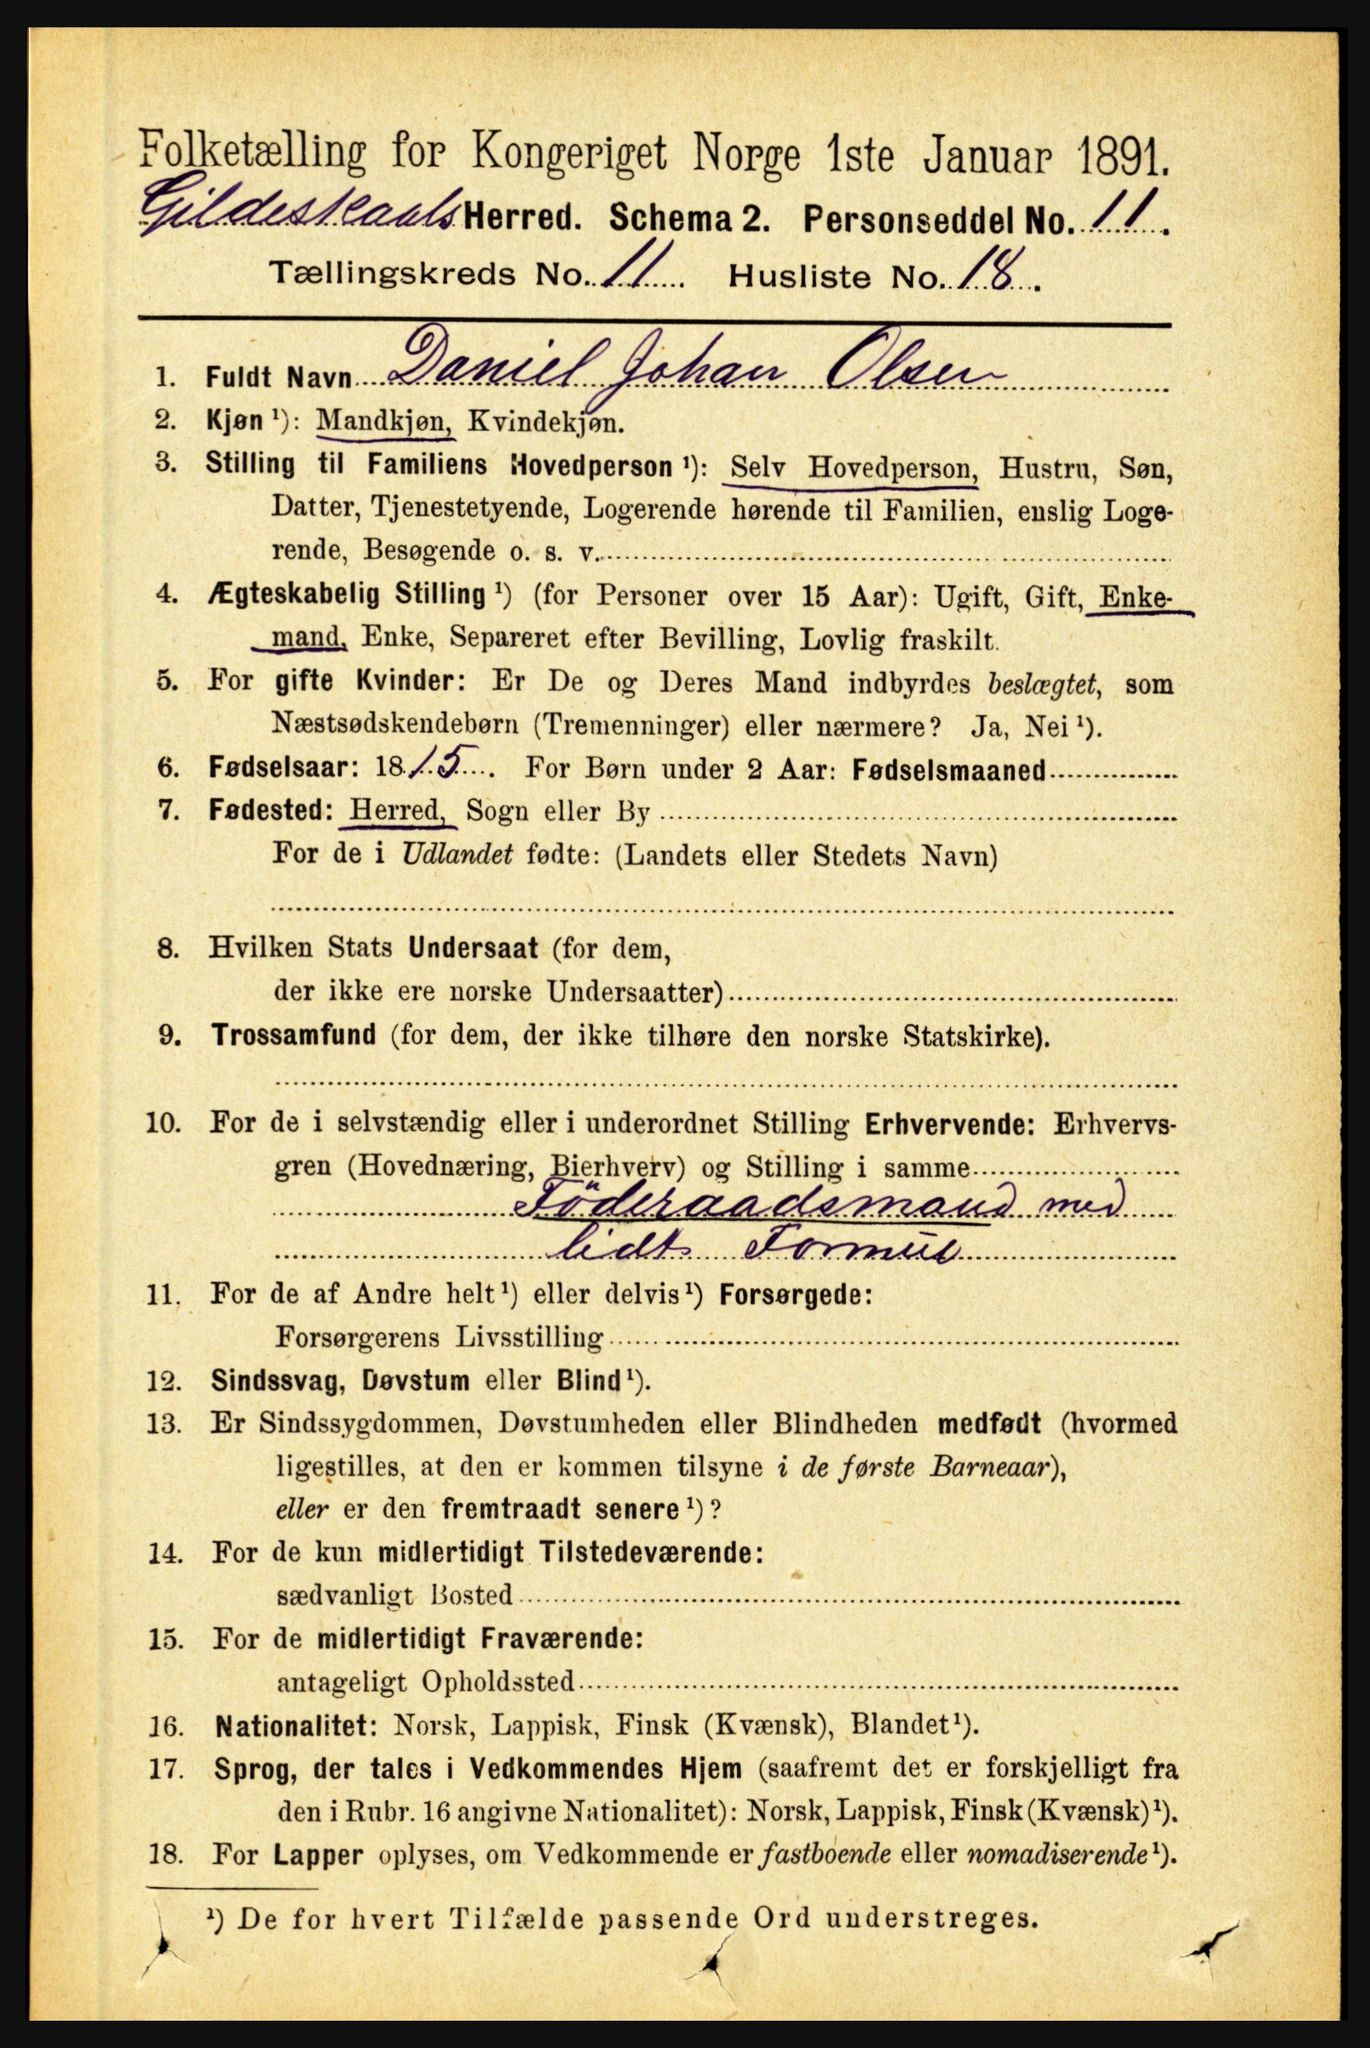 Folketælling for Kongeriget Norge 1ste Januar 1891.
Gildeskaals Herred. Schema 2. Personseddel No. 11.
Tællingskreds No. 11. Husliste No. 18.
1. Fuldt Navn Daniel Johan Olsen
2. Kjøn ¹): Mandkjøn, Kvindekjøn.
3. Stilling til Familiens Hovedperson ¹): Selv Hovedperson, Hustru, Søn,
Datter, Tjenestetyende, Logerende hørende til Familien, enslig Loge-
rende, Besøgende o. s. v.
4. Ægteskabelig Stilling ¹) (for Personer over 15 Aar): Ugift, Gift, Enke-
mand, Enke, Separeret efter Bevilling, Lovlig fraskilt.
5. For gifte Kvinder: Er De og Deres Mand indbyrdes beslægtet, som
Næstsødskendebørn (Tremenninger) eller nærmere? Ja, Nei ¹).
6. Fødselsaar: 1815. For Børn under 2 Aar: Fødselsmaaned
7. Fødested: Herred, Sogn eller By
For de i Udlandet fødte: (Landets eller Stedets Navn)
8. Hvilken Stats Undersaat (for dem,
der ikke ere norske Undersaatter)
9. Trossamfund (for dem, der ikke tilhøre den norske Statskirke).
10. For de i selvstændig eller i underordnet Stilling Erhvervende: Erhvervs-
gren (Hovednæring, Bierhverv) og Stilling i samme
Föderaadsmand med
lidt Formue
11. For de af Andre helt ¹) eller delvis ¹) Forsørgede:
Forsørgerens Livsstilling
12. Sindssvag, Døvstum eller Blind ¹).
13. Er Sindssygdommen, Døvstumheden eller Blindheden medfødt (hvormed
ligestilles, at den er kommen tilsyne i de første Barneaar),
eller er den fremtraadt senere ¹)?
14. For de kun midlertidigt Tilstedeværende:
sædvanligt Bosted
15. For de midlertidigt Fraværende:
antageligt Opholdssted
16. Nationalitet: Norsk, Lappisk, Finsk (Kvænsk), Blandet ¹).
17. Sprog, der tales i Vedkommendes Hjem (saafremt det er forskjelligt fra
den i Rubr. 16 angivne Nationalitet): Norsk, Lappisk, Finsk (Kvænsk) ¹).
18. For Lapper oplyses, om Vedkommende er fastboende eller nomadiserende ¹).
¹) De for hvert Tilfælde passende Ord understreges.